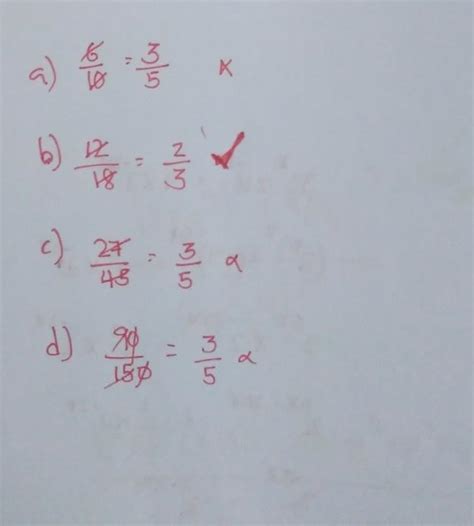 a) 6/10 = 3/5 x
b) 12/18 = 2/3 ✓
c) 27/45 = 3/5 x
d) 90/150 = 3/5 x